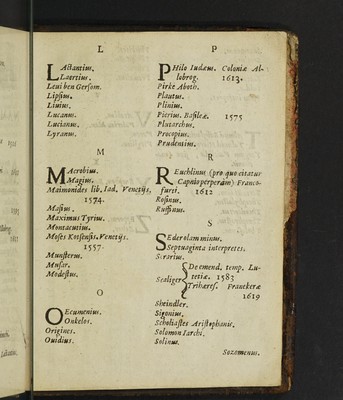 L
LActantius.
Laertius.
Leui ben Gersom.
Lipsius.
Liuius.
Lucanus.
Lucianus.
Lyranus.
M
MAcrobius.
Magius.
Maimonides lib. Iad. Venetijs.
1574.
Masius.
Maximus Tyrius.
Montacutius.
Moses Kotsensis. Venetijs.
1557.
Munsterus.
Musar.
Modestus.
O
OEcumenius.
Onkelos.
Origines.
Ouidius.
P
PHilo Iudæus. Coloniæ Al-
lobrog. 1613.
Pirke Aboth.
Plautus.
Plinius.
Pierius. Basileæ. 1575
Plutarchus.
Procopius.
Prudentius.
R
REuchlinus (pro quo citatur
Capnio perperàm) Franco-
furti. 1612
Rosinus.
Ruffinus.
S
SEder olam minus.
Septuaginta interpretes.
Serarius.
Scaliger
De emend. temp. Lu-
tetiæ. 1583
Trihæres. Franekeræ
1619
Sheindler.
Sigonius.
Scholiastes Aristophanis.
Solomon Iarchi.
Solinus.
Sozomenus.